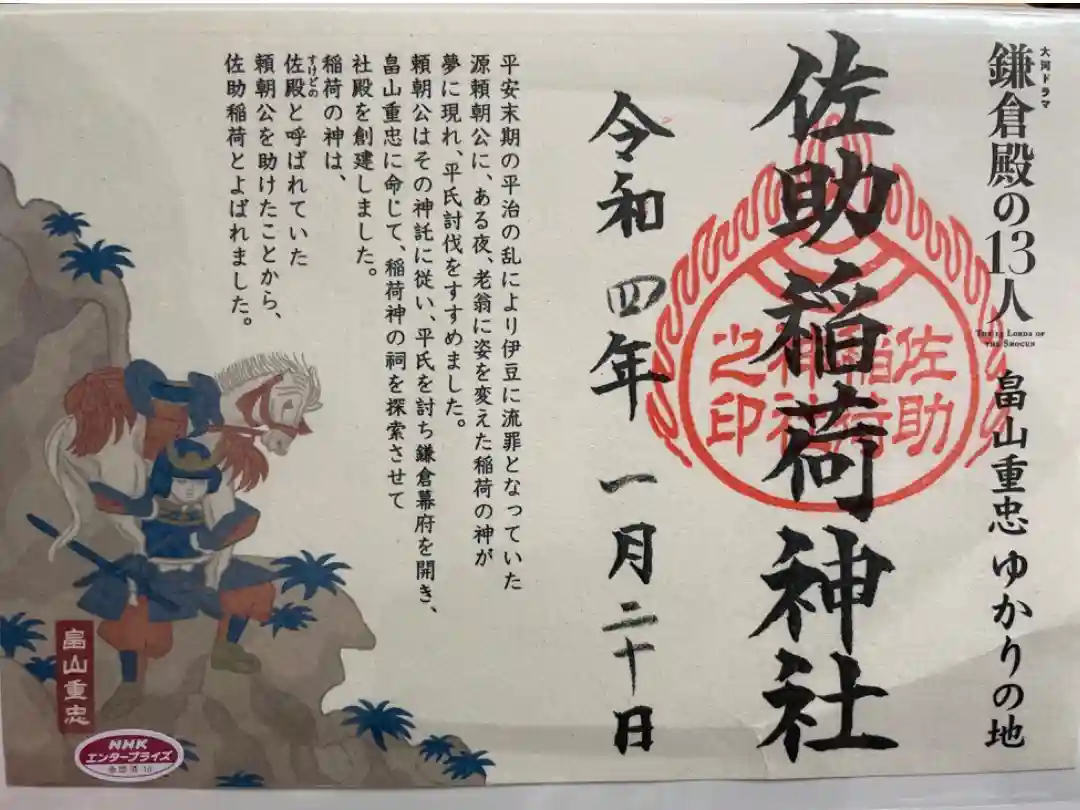 大河ドラマ
鎌倉殿の13人
THE 13 LORDS OF
THE SHOGUN
畠山重忠 ゆかりの地
佐助稲荷神社
佐助
稲荷
神社
之印
令和 四年 一月 二十日
平安末期の平治の乱により伊豆に流罪となっていた
源頼朝公に、ある夜、老翁に姿を変えた稲荷の神が
夢に現れ、平氏討伐をすすめました。
頼朝公はその神託に従い、平氏を討ち鎌倉幕府を開き、
畠山重忠に命じて、稲荷神の祠を探索させて
社殿を創建しました。
稲荷の神は、
すけどの
佐殿と呼ばれていた
頼朝公を助けたことから、
佐助稲荷とよばれました。
畠山重忠
NHK
エンタープライズ